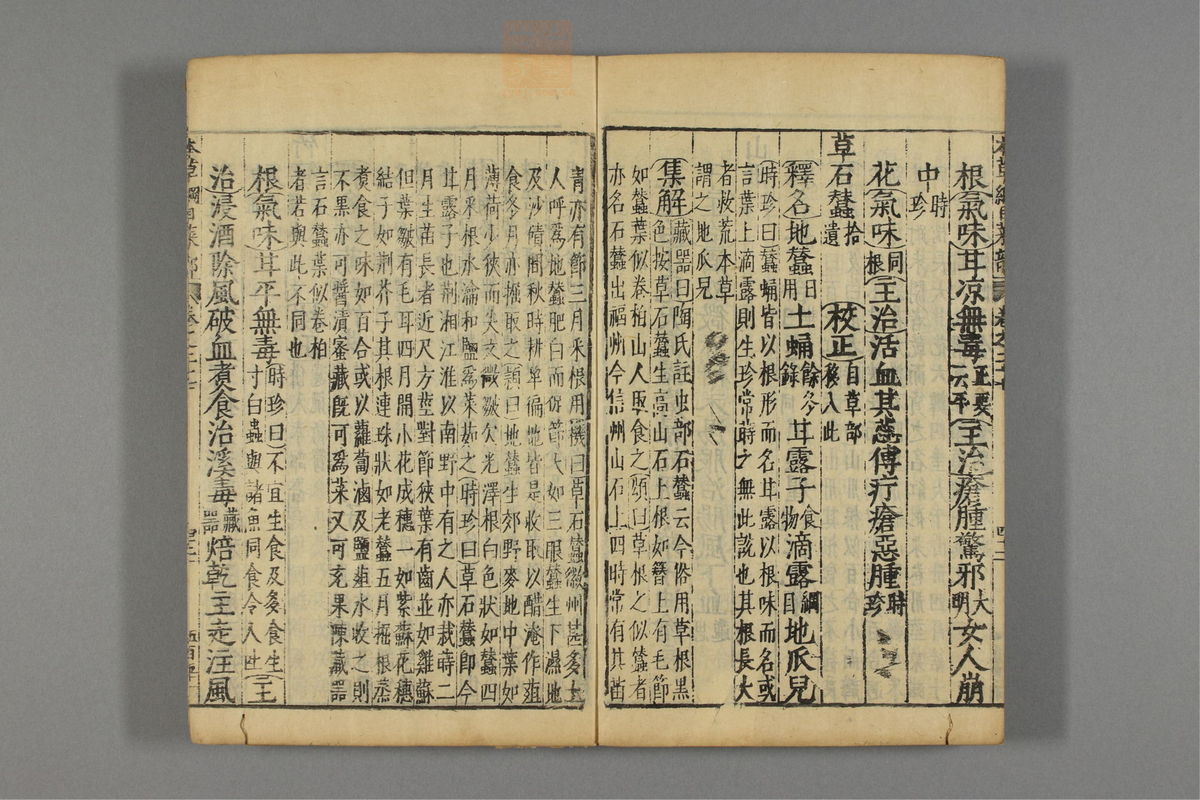 根氣味甘凉無毒正要云平主治瘡腫驚邪大明女人崩
中時珍
花氣味同根主治活血其蕊傅疔瘡惡腫時珍
草石蠶拾遺 校正自草部移入此
釋名地蠶日用土蛹餘錄甘露子食物滴露綱目地瓜兒
時珍曰蠶蛹皆以根形而名甘露以根味而名或
言葉上滴露則生珍常蒔之無此說也其根長大
者救荒本草
謂之地瓜兒
集解藏器曰陶氏註虫部石蠶云今俗用草根黑
色按草石蠶生高山石上根如簪上有毛節
如蠶葉似卷柏山人取食之頌曰草根之似蠶者
亦名石蠶出福州今信州山石上四時常有其苗
青亦有節三月采根用機曰草石蠶徽州甚多土
人呼爲地蠶肥白而促節大如三眠蠶生下濕地
及沙磧間秋時耕犂徧地皆是收取以醋淹作葅
食冬月亦掘取之頴曰地蠶生郊野麥地中葉如
薄荷少狹而尖文微皺欠光澤根白色狀如蠶四
月采根水瀹和鹽爲菜茹之時珍曰草石蠶即今
甘露子也荆湘江淮以南野中有之人亦栽蒔二
月生苗長者近尺方莖對節狹葉有齒並如雞蘇
但葉皺有毛耳四月開小花成穗一如紫蘇花穗
結子如荆芥子其根連珠狀如老蠶五月掘根蒸
煮食之味如百合或以蘿蔔滷及鹽葅水收之則
不黑亦可醬漬蜜藏既可爲菜又可充果陳藏器
言石蠶葉似卷柏
者若與此不同也
根氣味甘平無毒時珍曰不宜生食及多食生寸白蟲與諸魚同食令人吐主
治浸酒除風破血煮食治溪毒藏器焙乾主走注風
本草綱目菜部
四二